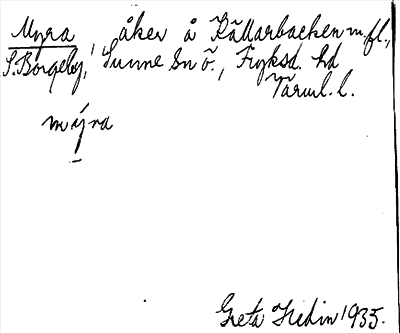 Myra, åker å Källarbacken m.fl.,
S. Borgeby, Sunne sn ö., Fryksd. hd
Värml. l.
mýra
Greta Hedin 1935.